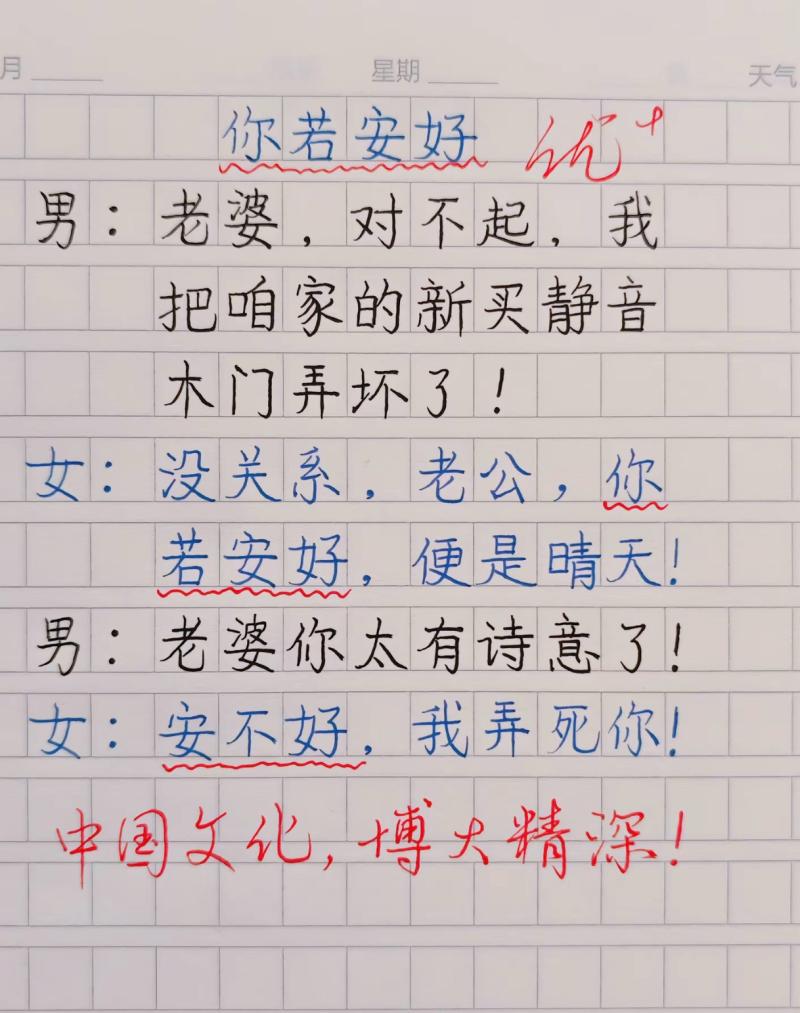 月 星期 天气
你若安好 优+
男：老婆，对不起，我
把咱家的新买静音
木门弄坏了！
女：没关系，老公，你
若安好，便是晴天！
男：老婆你太有诗意了！
女：安不好，我弄死你！
中国文化，博大精深！